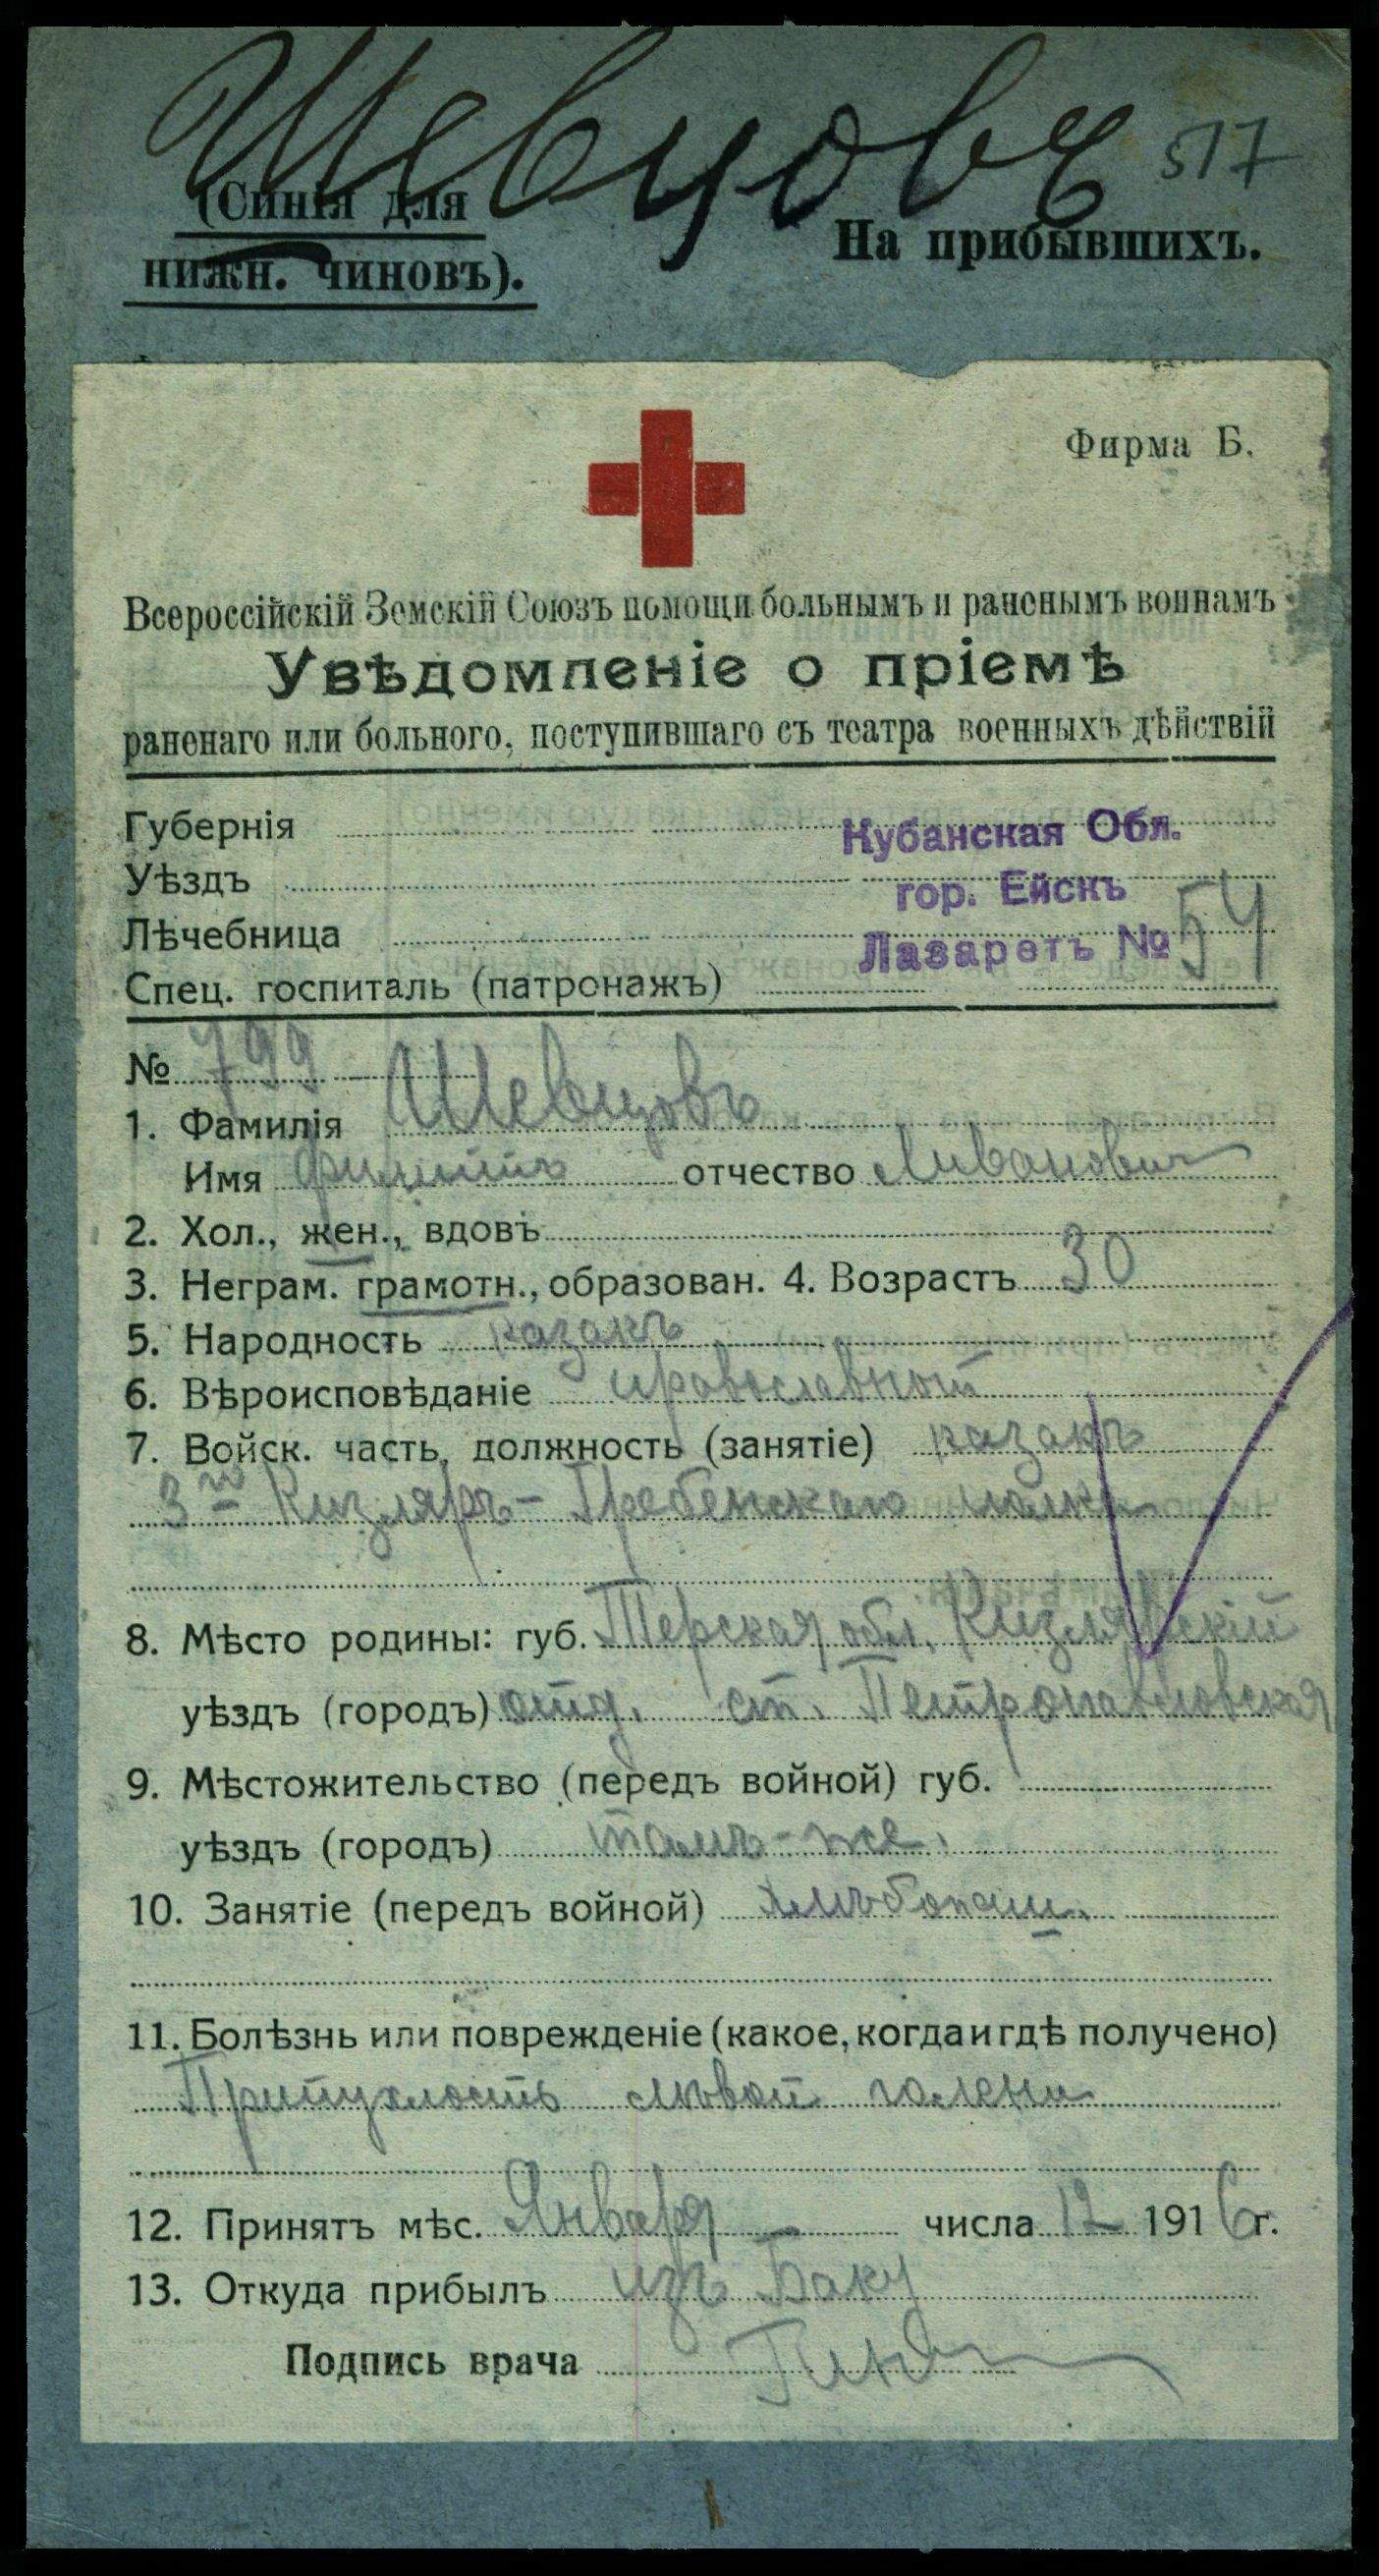 Шевцовъ 517
(Синія для
нижн. чиновъ).
На прибывшихъ.
Фирма Б.
Всероссійскій Земскій Союзъ помощи больнымъ и раненымъ воинамъ
Увѣдомленіе о пріемѣ
раненаго или больного, поступившаго съ театра военныхъ дѣйствій
Губернія Кубанская Обл.
Уѣздъ гор. Ейскъ
Лѣчебница Лазаретъ № 54
Спец. госпиталь (патронажъ)
№ 799
1. Фамилія Шевцовъ
Имя Филиппъ отчество Ливанович
2. Хол., жен., вдовъ
3. Неграм. грамотн., образован. 4. Возрастъ 30
5. Народность казакъ
6. Вѣроисповѣданіе православный
7. Войск. часть, должность (занятіе) казакъ
3го Кизляръ-Гребенскаго полка
8. Мѣсто родины: губ. Терская обл. Кизлярскій
уѣздъ (городъ) отд. ст. Петропавловская
9. Мѣстожительство (передъ войной) губ.
уѣздъ (городъ) тамъ-же.
10. Занятіе (передъ войной) хлѣбопаш.
11. Болѣзнь или поврежденіе (какое, когда и гдѣ получено)
Припухлость лѣвой голени
12. Принятъ мѣс. Января числа 12 1916 г.
13. Откуда прибылъ изъ Баку
Подпись врача